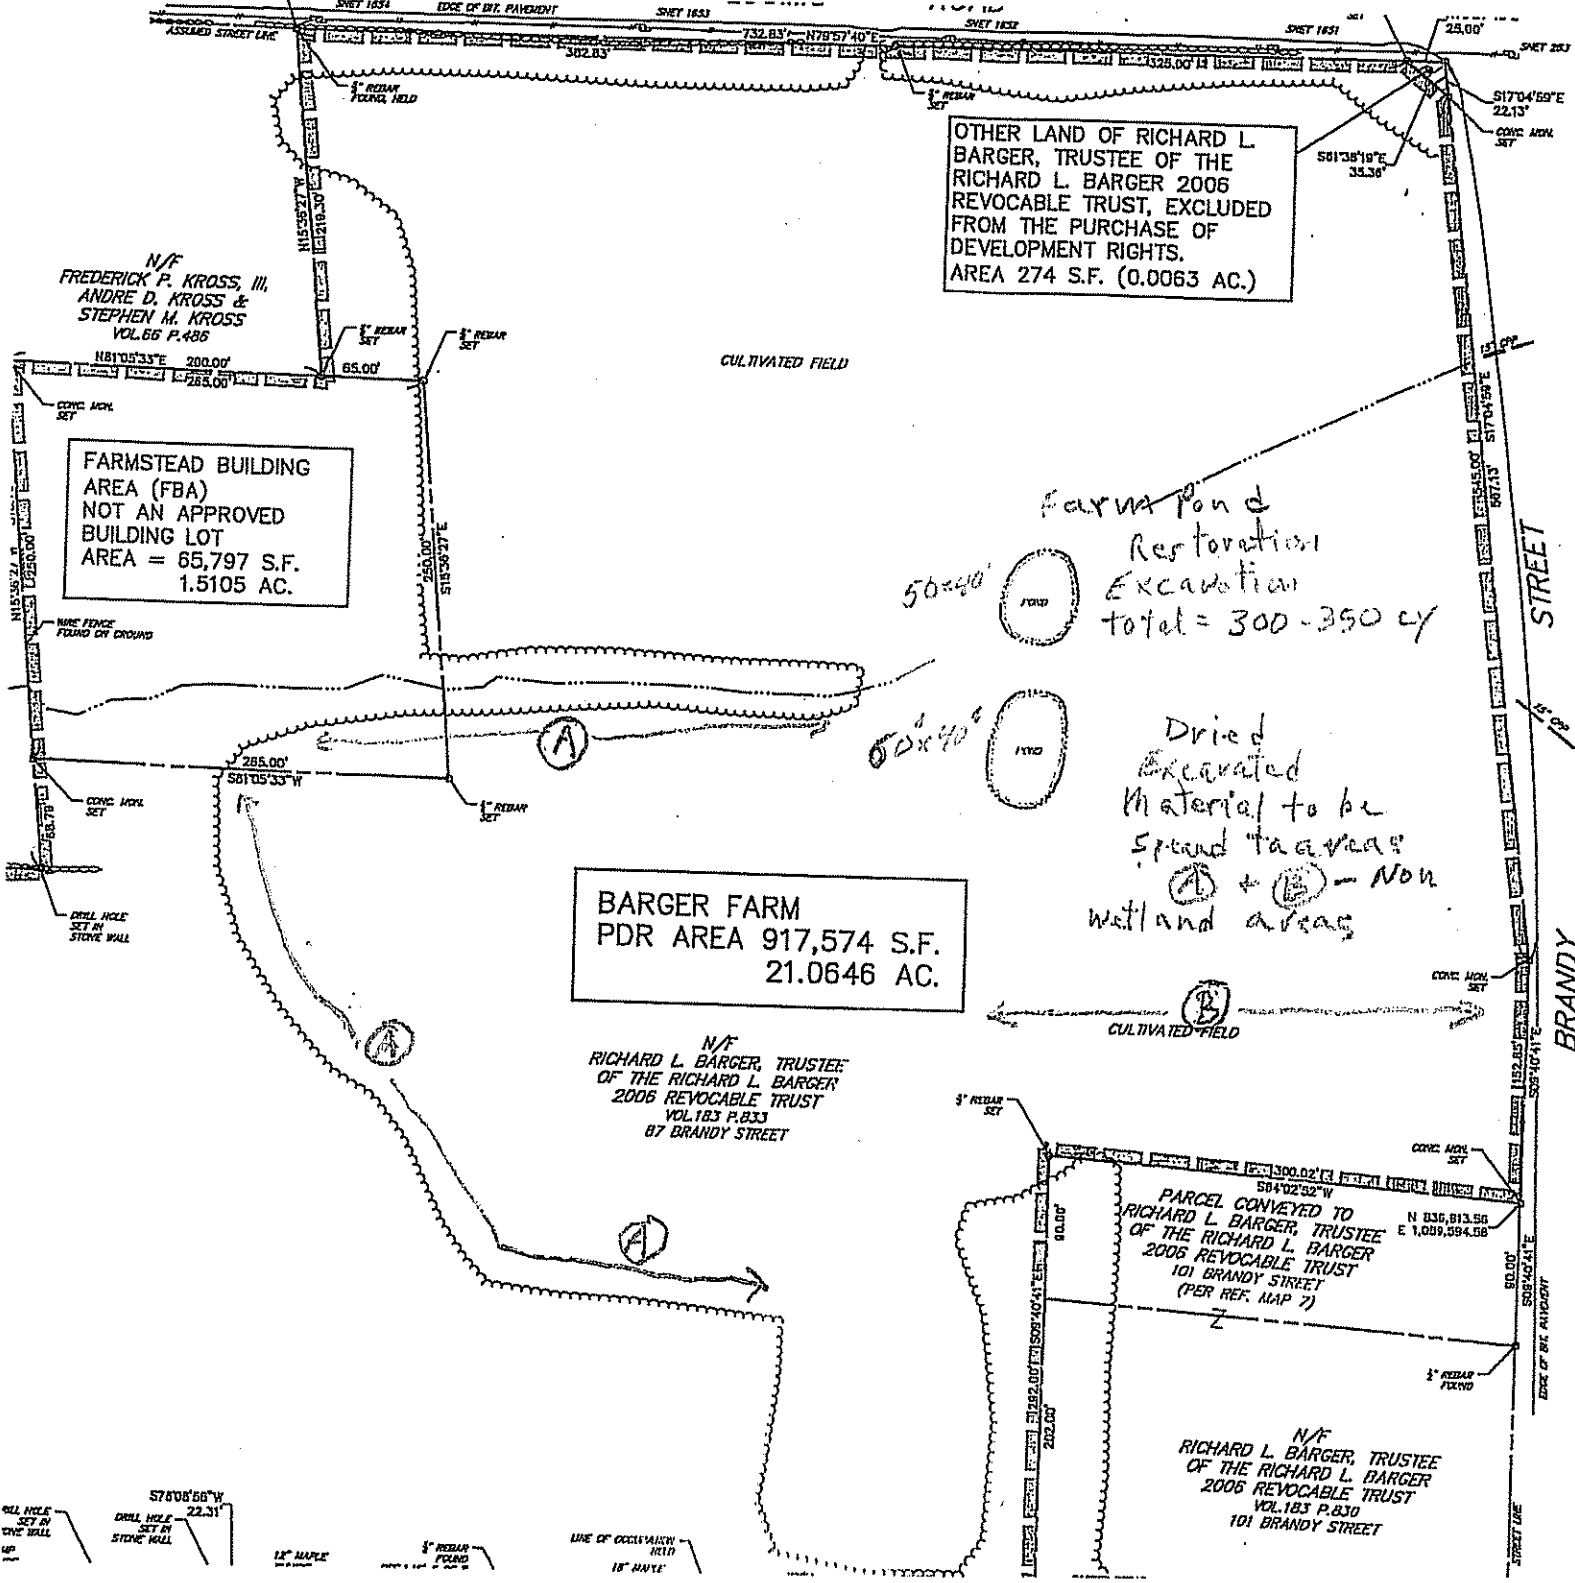 SNET 1654
EDGE OF BIT. PAVEMENT
SNET 1653
ROAD
SNET 1652
SNET 1651
25.00'
SNET 253
ASSUMED STREET LINE
732.83'
N79°57'40"E
382.83'
325.00'
REBAR
FOUND, HELD
REBAR
SET
S17°04'59"E
22.13'
CONC. MON.
SET
S61°36'19"E
35.36'
OTHER LAND OF RICHARD L.
BARGER, TRUSTEE OF THE
RICHARD L. BARGER 2006
REVOCABLE TRUST, EXCLUDED
FROM THE PURCHASE OF
DEVELOPMENT RIGHTS.
AREA 274 S.F. (0.0063 AC.)
N15°36'27"W
219.30'
N/F
FREDERICK P. KROSS, III,
ANDRE D. KROSS &
STEPHEN M. KROSS
VOL.66 P.486
REBAR
SET
REBAR
SET
N81°05'33"E 200.00'
265.00'
65.00'
CULTIVATED FIELD
15" CPP
S17°04'59"E
545.00'
567.13'
CONC. MON.
SET
FARMSTEAD BUILDING
AREA (FBA)
NOT AN APPROVED
BUILDING LOT
AREA = 65,797 S.F.
1.5105 AC.
N15°36'27"W
250.00'
250.00'
S15°36'27"E
Farm Pond
Restoration
Excavation
total = 300-350 cy
50x40'
POND
STREET
WIRE FENCE
FOUND ON GROUND
A
50'x40'
POND
15" CPP
Dried
Excavated
Material to be
Spread to areas
A + B - Non
wetland areas
265.00'
S81°05'33"W
CONC. MON.
SET
REBAR
SET
68.79'
DRILL HOLE
SET IN
STONE WALL
BARGER FARM
PDR AREA 917,574 S.F.
21.0646 AC.
CONC. MON.
SET
BRANDY
B
CULTIVATED FIELD
A
N/F
RICHARD L. BARGER, TRUSTEE
OF THE RICHARD L. BARGER
2006 REVOCABLE TRUST
VOL.183 P.833
87 BRANDY STREET
152.85'
S09°40'41"E
REBAR
SET
CONC. MON.
SET
300.02'
S84°02'52"W
N 836,813.56
E 1,089,594.58
PARCEL CONVEYED TO
RICHARD L. BARGER, TRUSTEE
OF THE RICHARD L. BARGER
2006 REVOCABLE TRUST
101 BRANDY STREET
(PER REF. MAP 7)
90.00'
A
Z
90.00'
S09°40'41"E
292.00'
S09°40'41"E
202.00'
REBAR
FOUND
EDGE OF BIT. PAVEMENT
N/F
RICHARD L. BARGER, TRUSTEE
OF THE RICHARD L. BARGER
2006 REVOCABLE TRUST
VOL.183 P.830
101 BRANDY STREET
STREET LINE
SET IN
DRILL HOLE
SET IN
STONE WALL
22.31'
12" MAPLE
REBAR
FOUND
LINE OF OCCUPATION
18" MAPLE